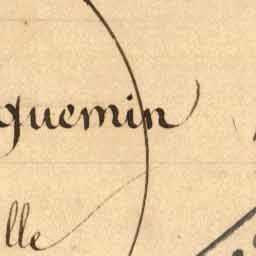 quemin
lle